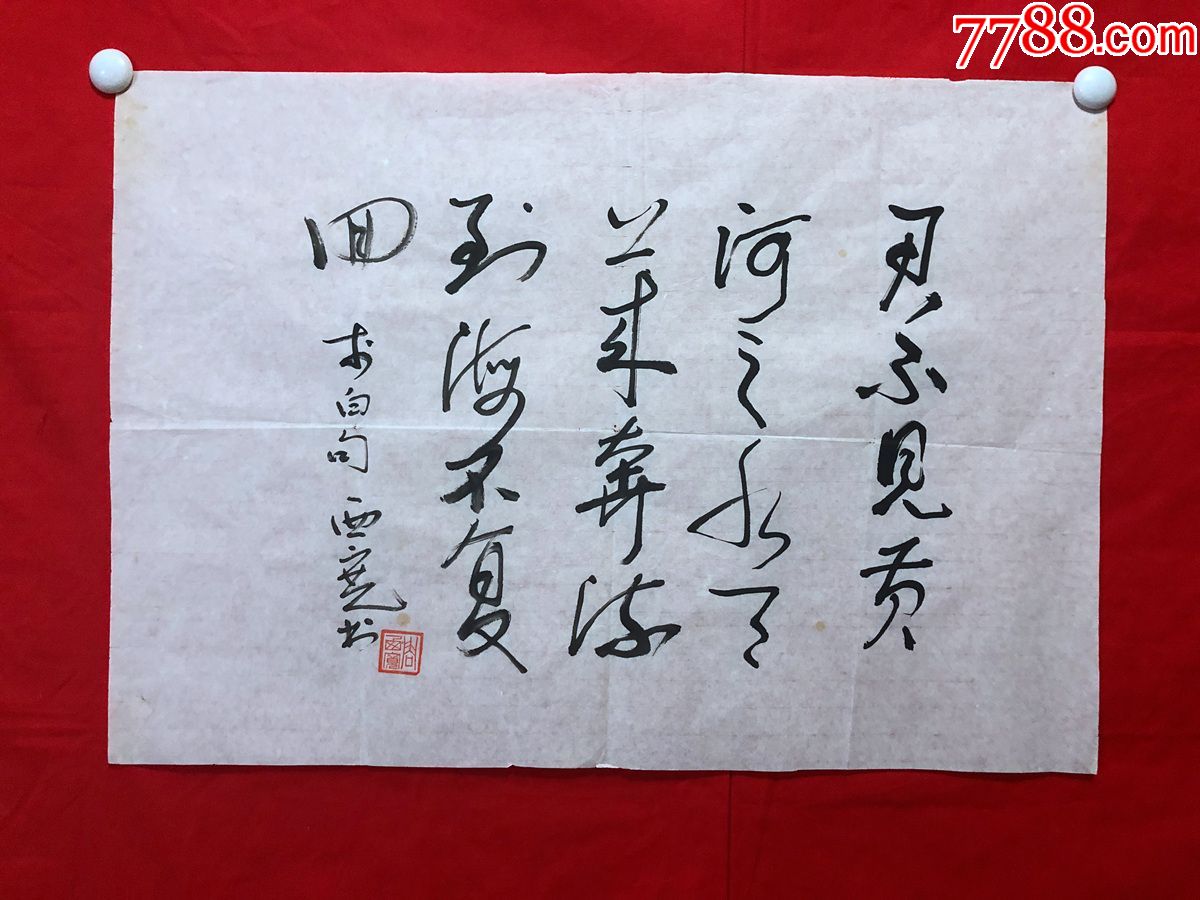 7788.com
君不見黄
河之水天
上来奔流
到海不复
回
李白句 西书